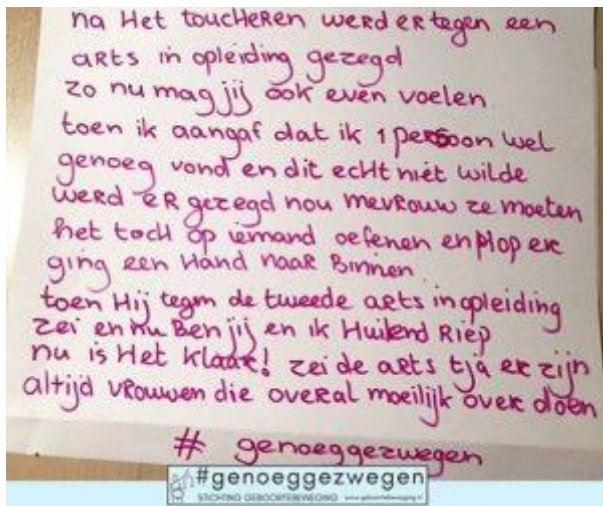 na Het toucheren werd er tegen een
arts in opleiding gezegd
zo nu mag jij ook even voelen
toen ik aangaf dat ik 1 persoon wel
genoeg vond en dit echt niet wilde
werd er gezegd nou mevrouw ze moeten
het toch op iemand oefenen en plop er
ging een Hand naar Binnen
toen Hij tegen de tweede arts in opleiding
zei en nu Ben jij en ik Huilend Riep
nu is Het klaar! zei de arts tja er zijn
altijd vrouwen die overal moeilijk over doen
# genoeggezwegen
#genoeggezwegen
STICHTING GEBOORTEBEWEGING www.geboortebeweging.nl